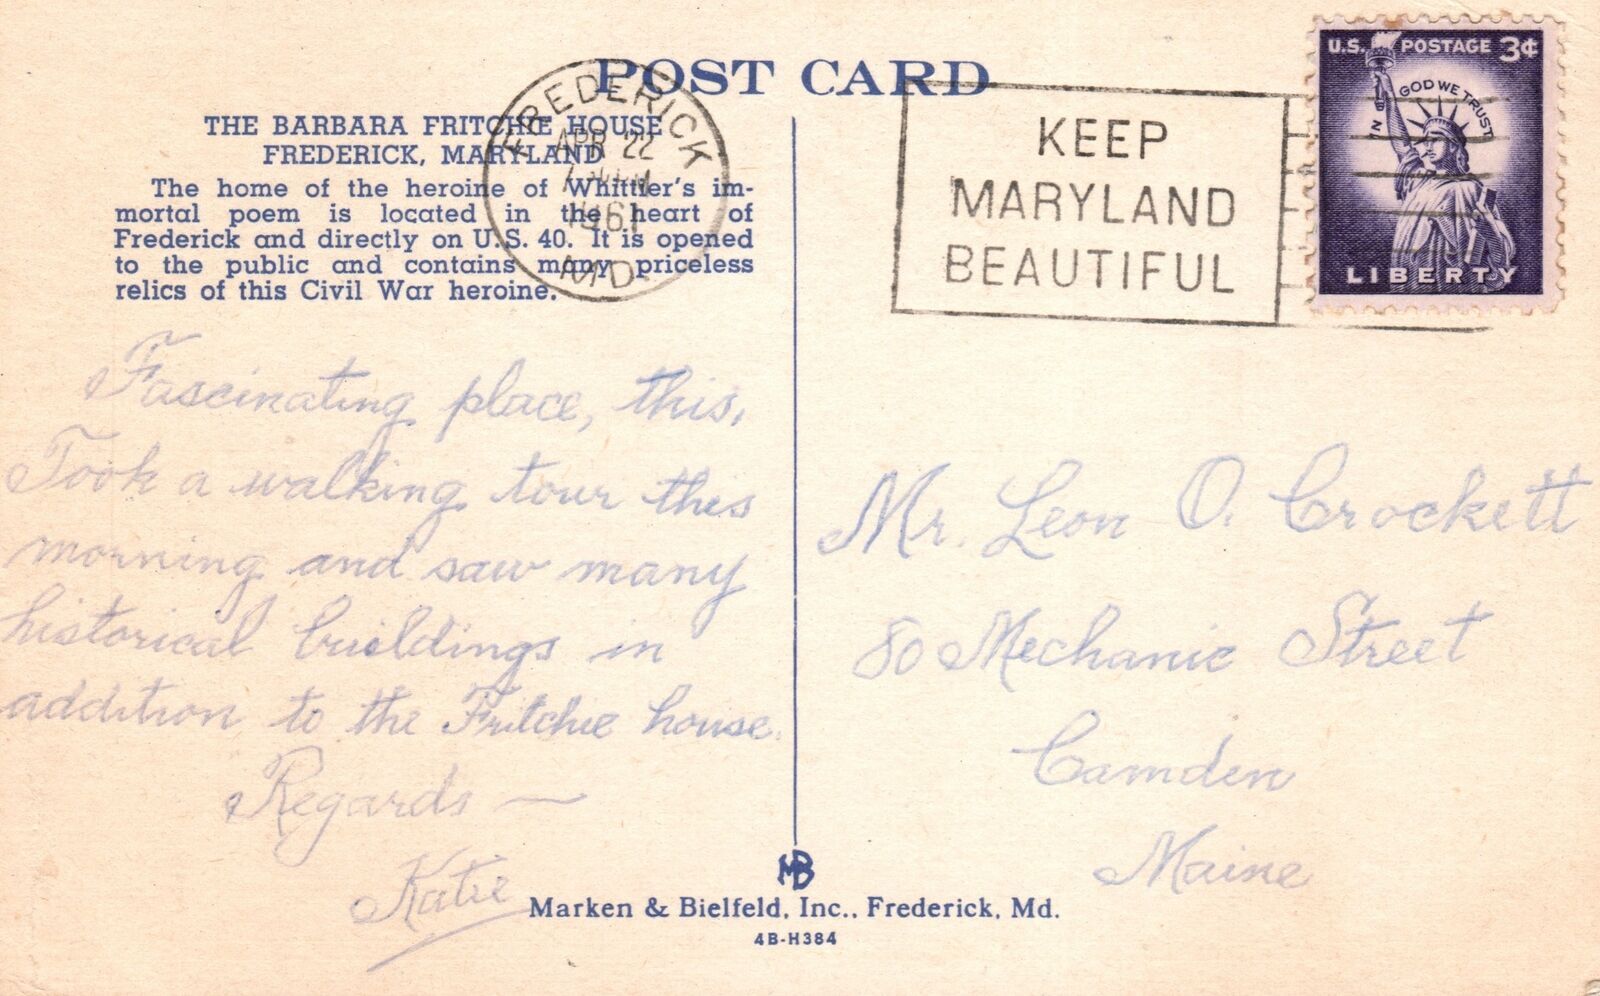 POST CARD
THE BARBARA FRITCHIE HOUSE
FREDERICK, MARYLAND
The home of the heroine of Whittier's im-
mortal poem is located in the heart of
Frederick and directly on U.S. 40. It is opened
to the public and contains many priceless
relics of this Civil War heroine.
FREDERICK
APR 22
PM
1961
MD.
KEEP
MARYLAND
BEAUTIFUL
U.S. POSTAGE 3¢
IN GOD WE TRUST
LIBERTY
Fascinating place, this.
Took a walking tour this
morning and saw many
historical buildings in
addition to the Fritchie house.
Regards —
Katie
Mr. Leon O. Crockett
80 Mechanic Street
Camden
Maine
MB
Marken & Bielfeld, Inc., Frederick, Md.
4B-H384